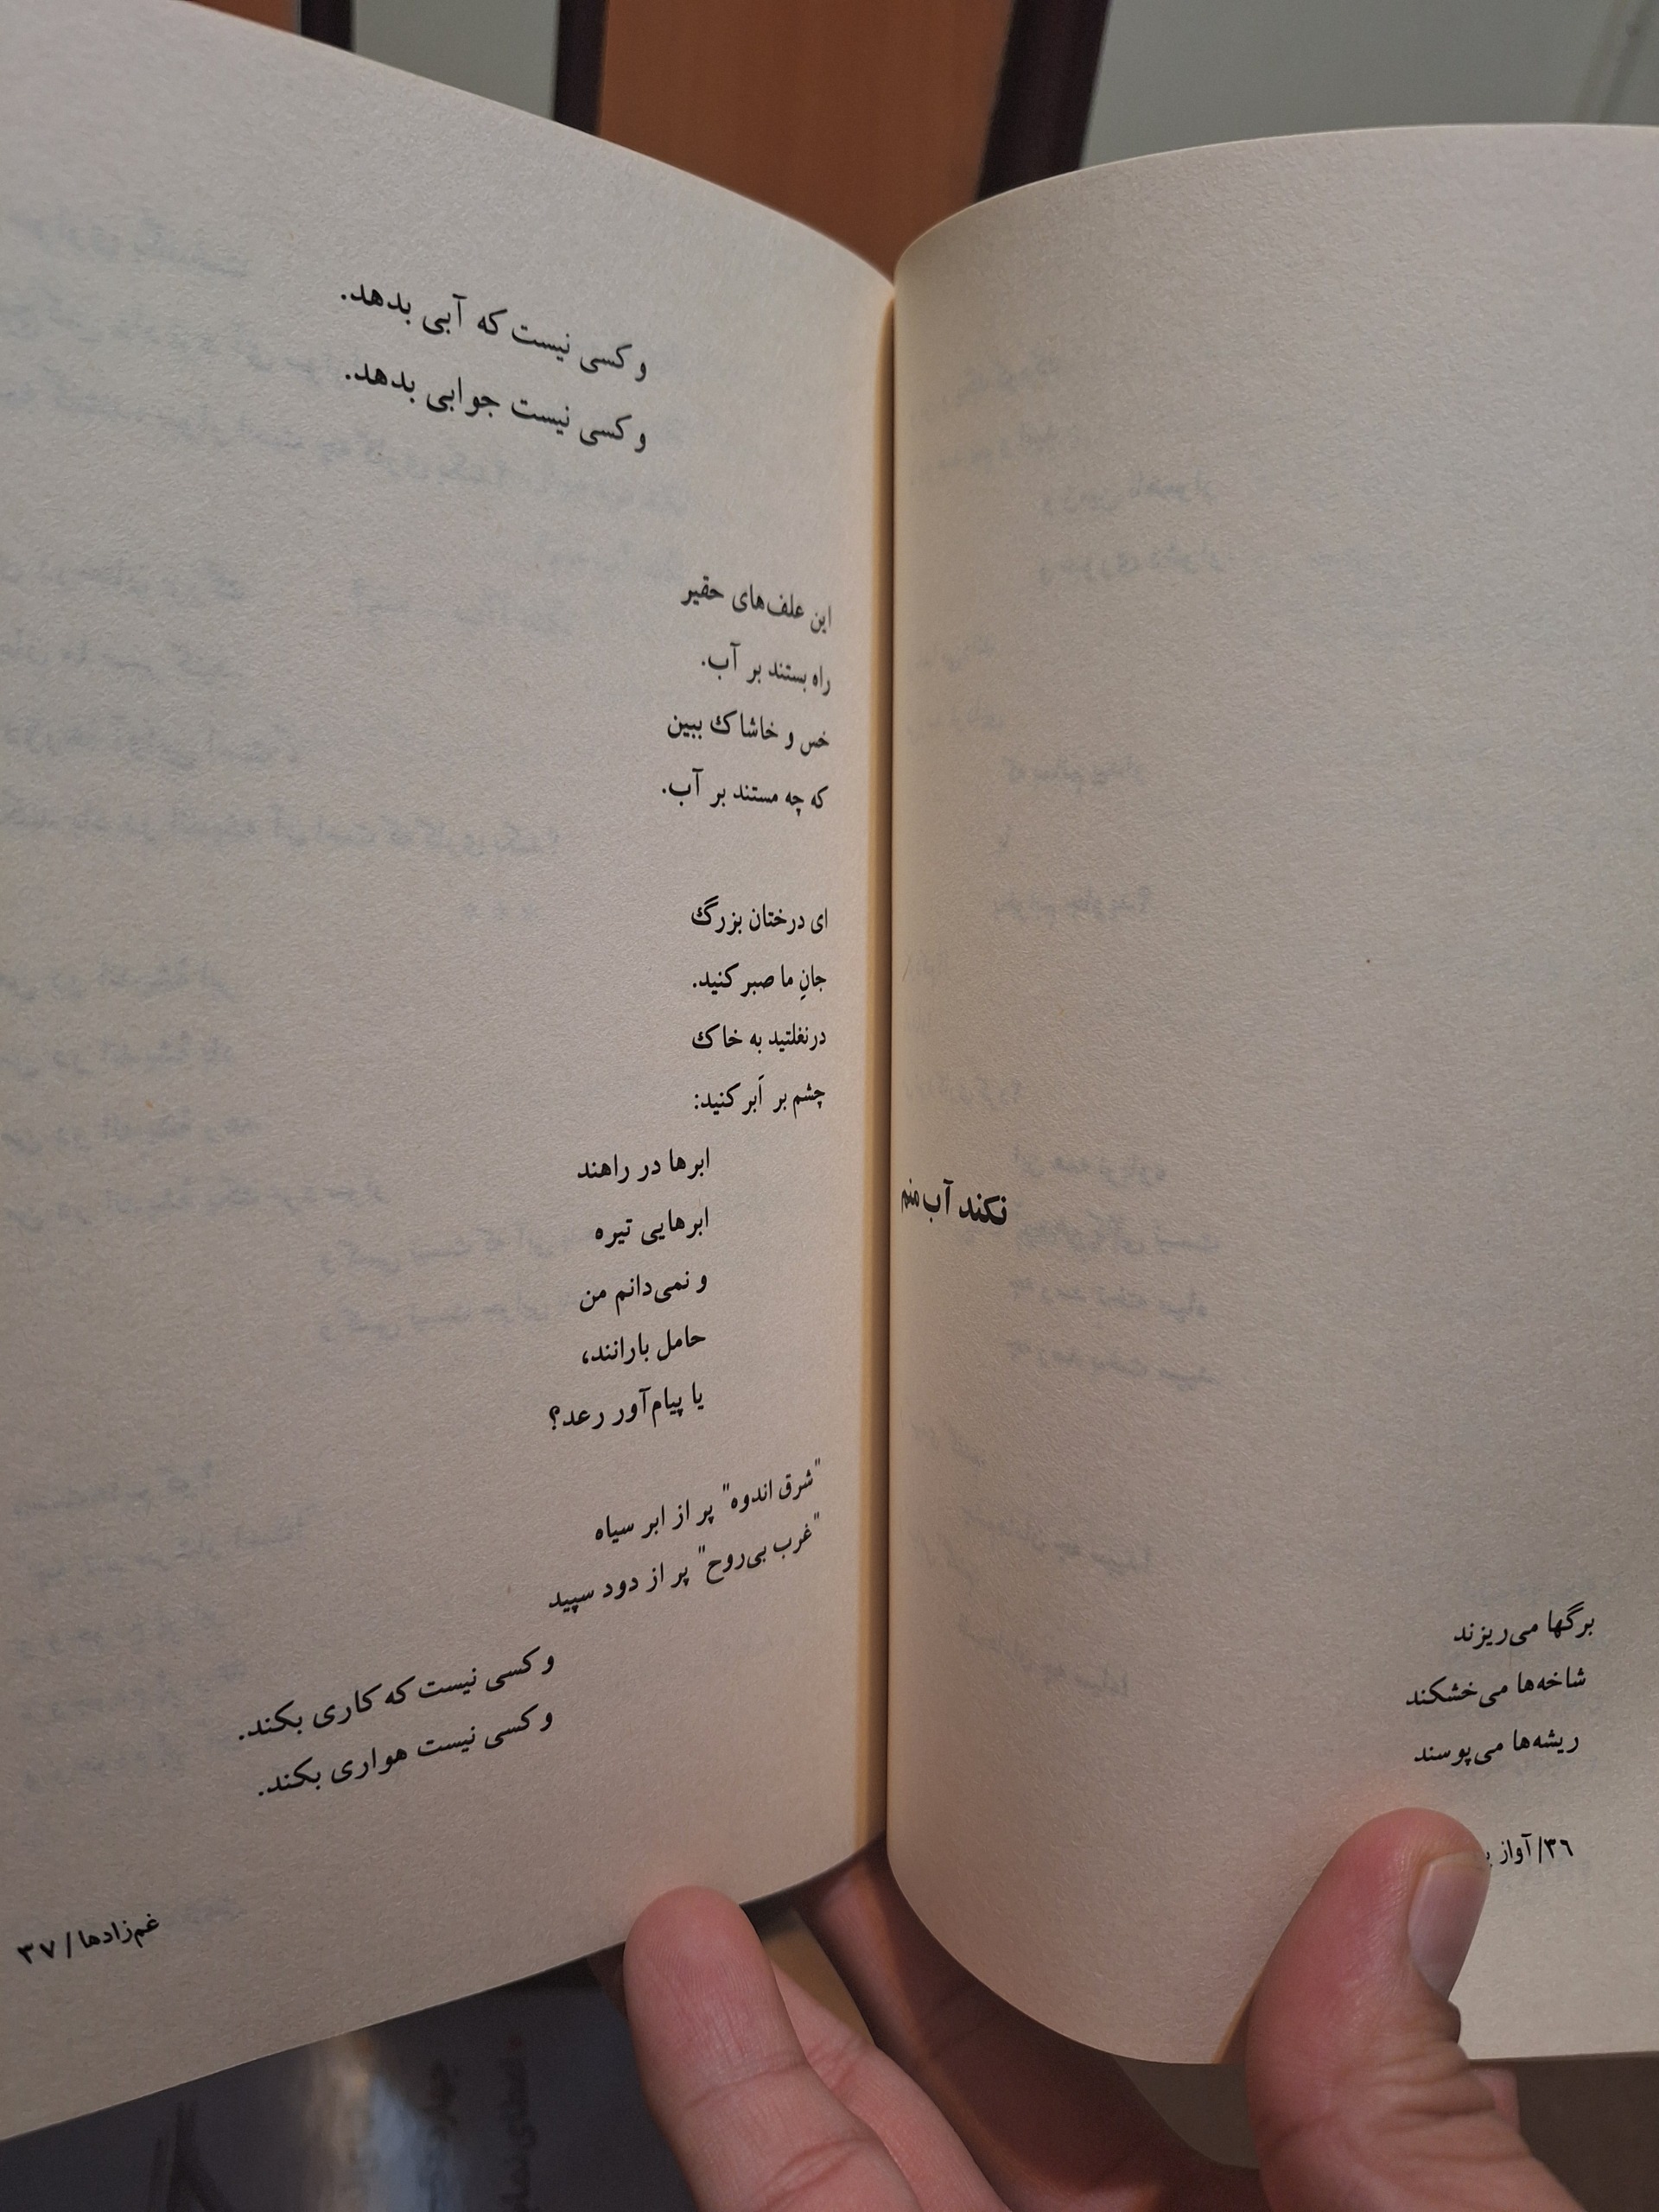 نکند آب منم
برگها می‌ریزند
شاخه‌ها می‌خشکند
ریشه‌ها می‌پوسند
۳۶/ آواز
و کسی نیست که آبی بدهد.
و کسی نیست جوابی بدهد.
این علف‌های حقیر
راه بستند بر آب.
خس و خاشاک ببین
که چه مستند بر آب.
ای درختان بزرگ
جانِ ما صبر کنید.
درنغلتید به خاک
چشم بر اَبر کنید:
ابرها در راهند
ابرهایی تیره
و نمی‌دانم من
حامل بارانند،
یا پیام‌آور رعد؟
"شرق اندوه" پر از ابر سیاه
"غرب بی‌روح" پر از دود سپید
و کسی نیست که کاری بکند.
و کسی نیست هواری بکند.
غم‌زادها / ۳۷